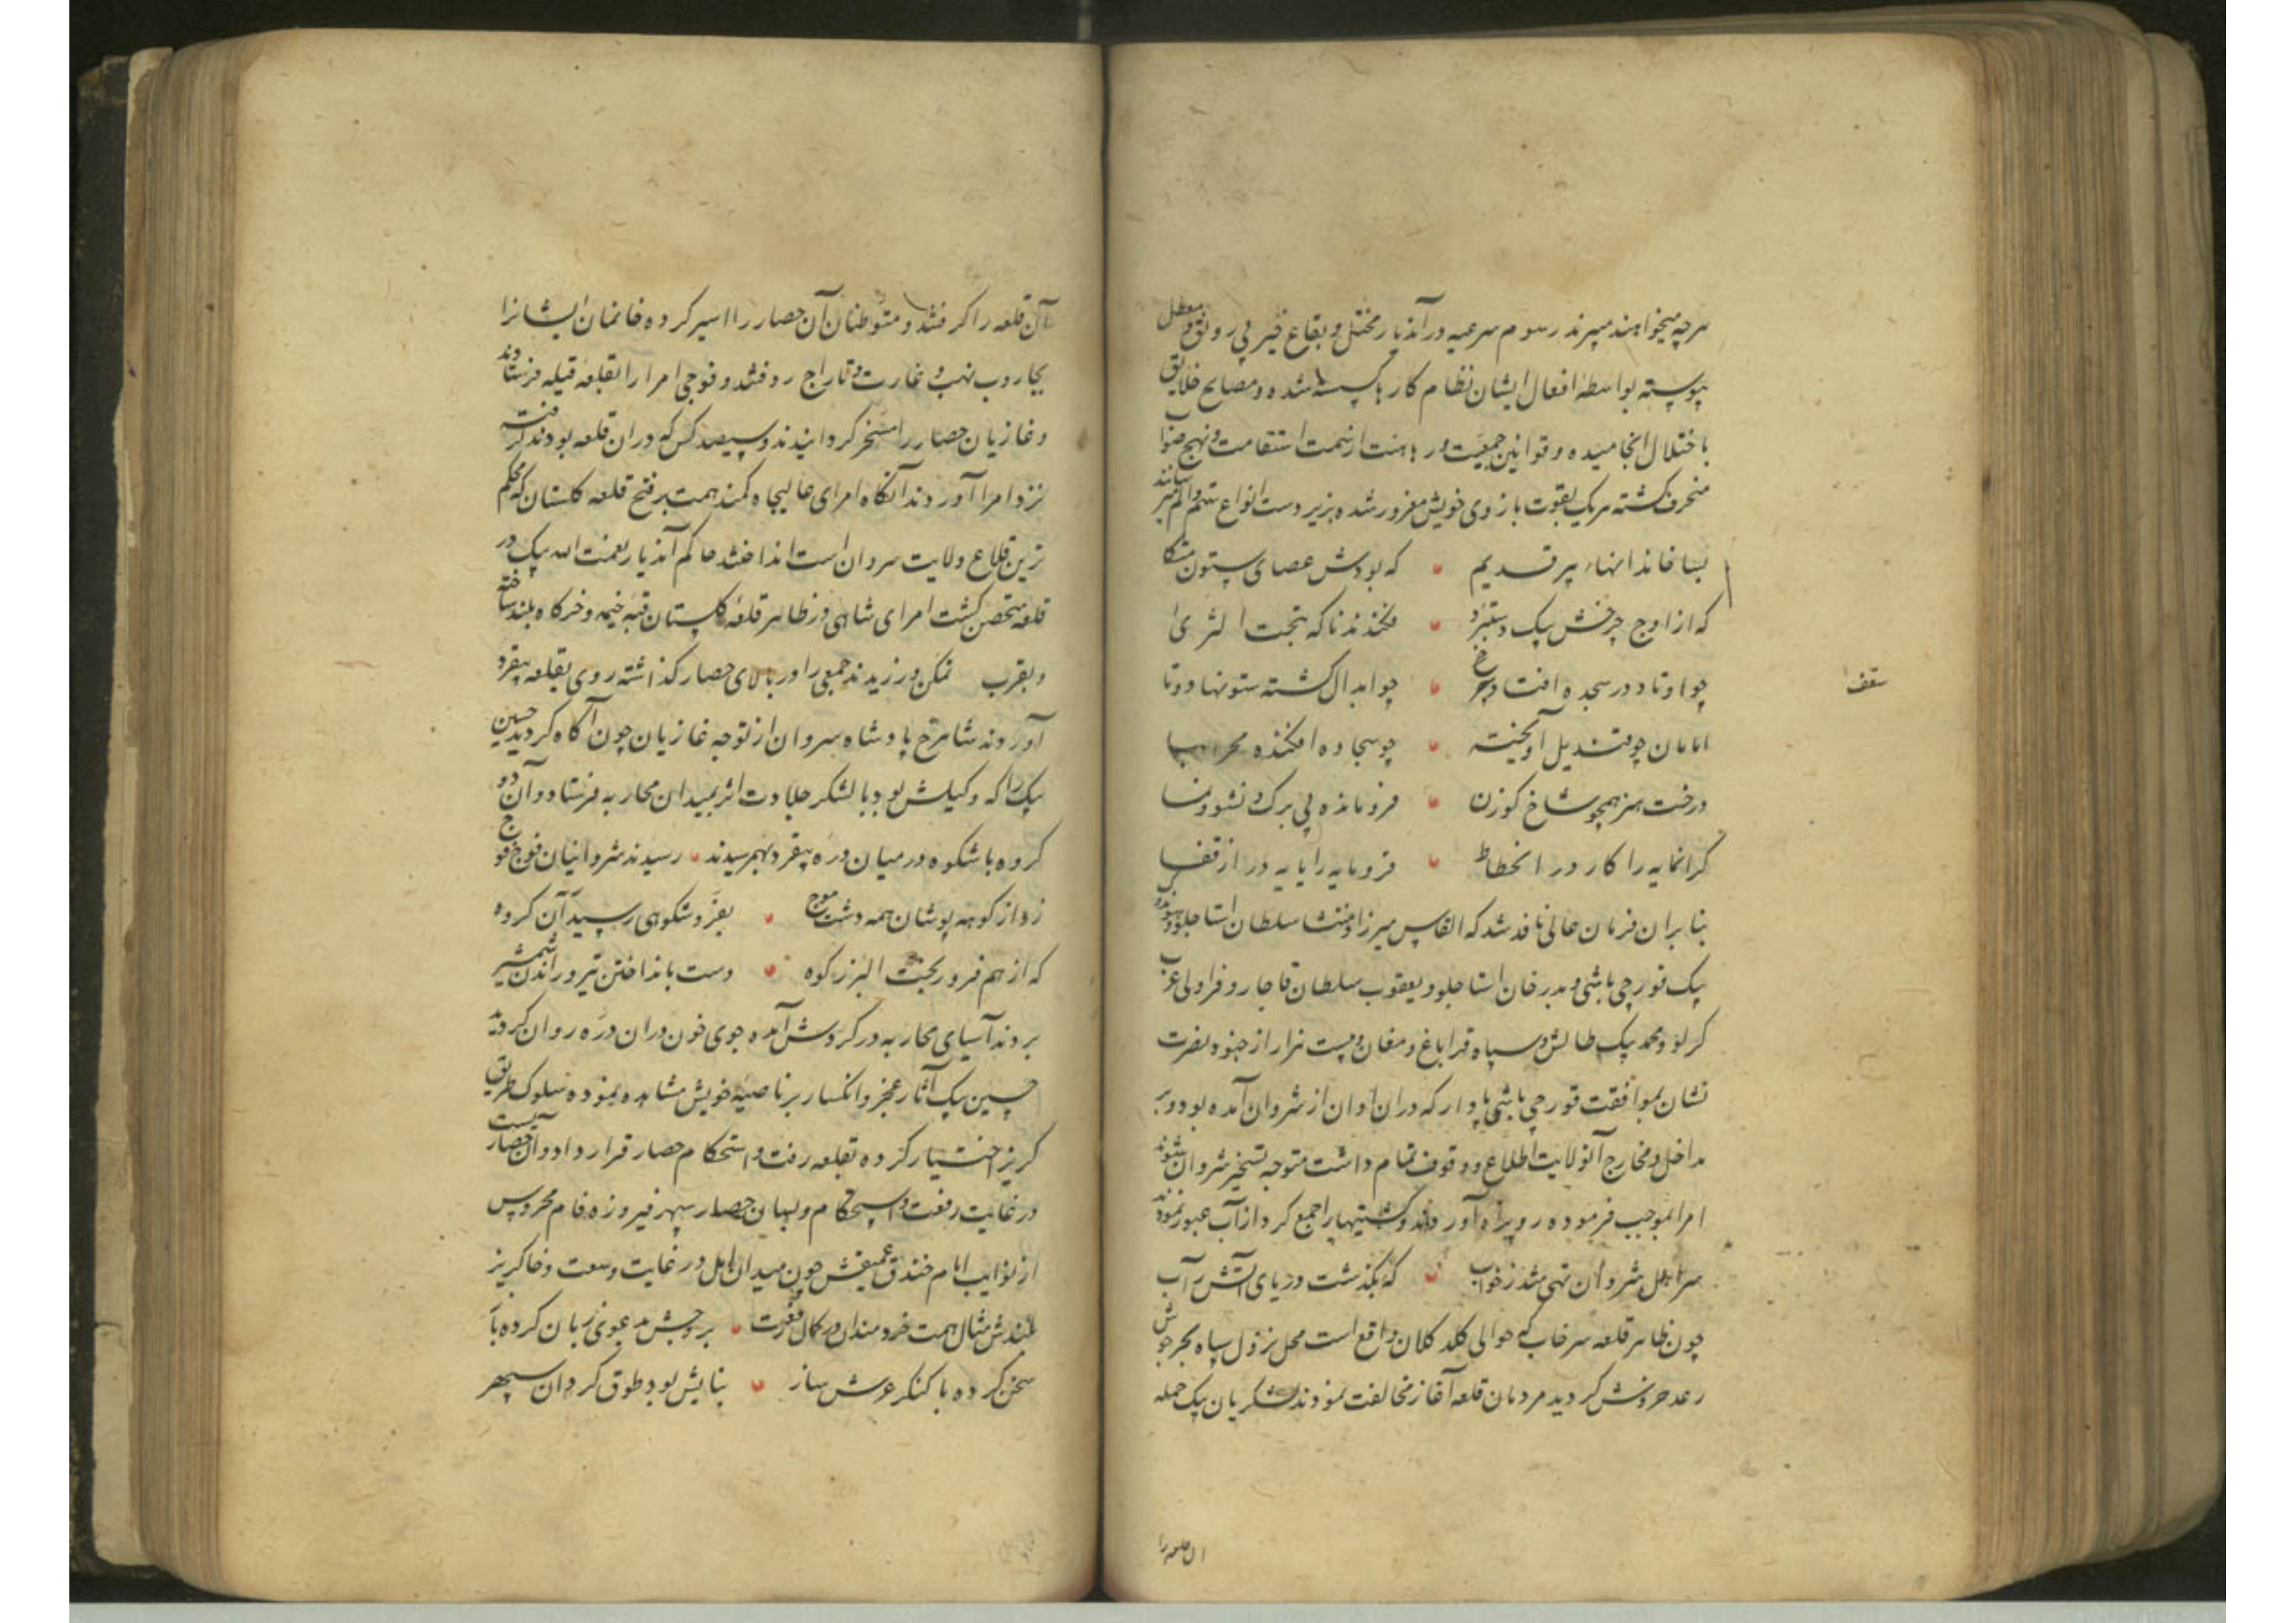 هرچه میخواهند میبرند رسوم شرعیه در آندیار مختل و بقاع خیر بی رونق و معطل
پیوسته بواسطه افعال ایشان نظام کارها گسسته شده و مصالح خلایق
باختلال انجامیده و قوانین جمعیت ورباهنت از سمت استقامت و نهج صواب
منحرف گشته هریک بقوت بازوی خویش مغرور شده بزیردست انواع ستم و الم میرسانند
بسا خاندانهاء پیر قدیم که بودش عصای ستون متکا
که از اوج چرخش بیک دستبرد فکندند ناگه بتحت الثری
چو اوتاد در سجده افتاده چرخ چو ابدال گشته ستونها دوتا
سقف
امامان چو قندیل آویخته چو سجاده افکنده محرابها
درخت هنر همچو شاخ گوزن فرومانده بی برگ و نشو و نما
گرانمایه را کار در انحطاط فرومایه را پایه در ارتقا
بنابران فرمان عالی نافذ شد که القاس میرزا و منتشا سلطان استاجلو و سوندوک
بیک قورچی باشی و بدر خان استاجلو و یعقوب سلطان قاجار و قراولی عرب
کرلو و محمد بیک طالش و سپاه قراباغ و مغان و بیست هزار از جنود نصرت
نشان بموافقت قورچی باشی پادار که دران اوان از شروان آمده بود و بر
مداخل و مخارج آنولایت اطلاع و وقوف تمام داشت متوجه تسخیر شروان شوند
امرا بموجب فرموده رو براه آوردند و کشتیها را جمع کرد از آب عبور نمودند
سر اهل شروان تهی شد ز خواب که بگذشت دریای آتش ز آب
چون ظاهر قلعه سرخاب که حوالی کلد کلان واقع است محل نزول سپاه بحر جوش
رعد خروش گردید مردمان قلعه آغاز مخالفت نمودند لشکریان بیک حمله
ان قلعه را
آن قلعه را گرفتند و متوطنان آن حصار را اسیر کرده خانمان ایشانرا
بجاروب نهب و غارت و تاراج رفتند و فوجی امرا را بقلعه قبله فرستادند
و غازیان حصار را مسخر گردانیدند و سیصد کس که دران قلعه بودند گرفته
نزد امرا آوردند آنگاه امرای عالیجاه کمند همت بر فتح قلعه گلستان که محکم
ترین قلاع ولایت سروان است انداختند حاکم آندیار نعمت الله بیک در
قلعه متحصن گشت امرای شاهی در ظاهر قلعه گلستان قبه خیمه و خرگاه بلند ساخته
و بقرب تمکن ورزیدند جمعی را در بالای حصار گذاشته روی بقلعه بیقرد
آوردند شاهرخ پادشاه سروان از توجه غازیان چون آگاه گردید حسین
بیک را که وکیلش بود با لشکر جلادت اثر بمیدان محاربه فرستاد و آن دو
گروه باشکوه در میان دره بیقرد بهم رسیدند رسیدند شروانیان فوج فوج
زد از کوهه پوشان همه دشت موج بعز و شکوهی رسید آن گروه
که از هم فرو ریخت البرز کوه دست بانداختن تیر و راندن شمشیر
بردند آسیای محاربه در گردش آمده جوی خون دران دره روان کردند
حسین بیک آثار عجز و انکسار بر ناصیه خویش مشاهده نموده سلوک طریق
گریز اختیار کرده بقلعه رفت و استحکام حصار قرار داد و آن حصاریست
در غایت رفعت و استحکام و لبهان حصار سپهر فیروزه فام محروس
از نوایب ایام خندق عمیقش چون میدان امل در غایت وسعت و خاکریز
بلندش مثال همت خردمندان در کمال رفعت بروجش بدعوی زبان کرده باز
سخن کرده با کنگر عرش ساز بنایش بود طوق گردان سپهر